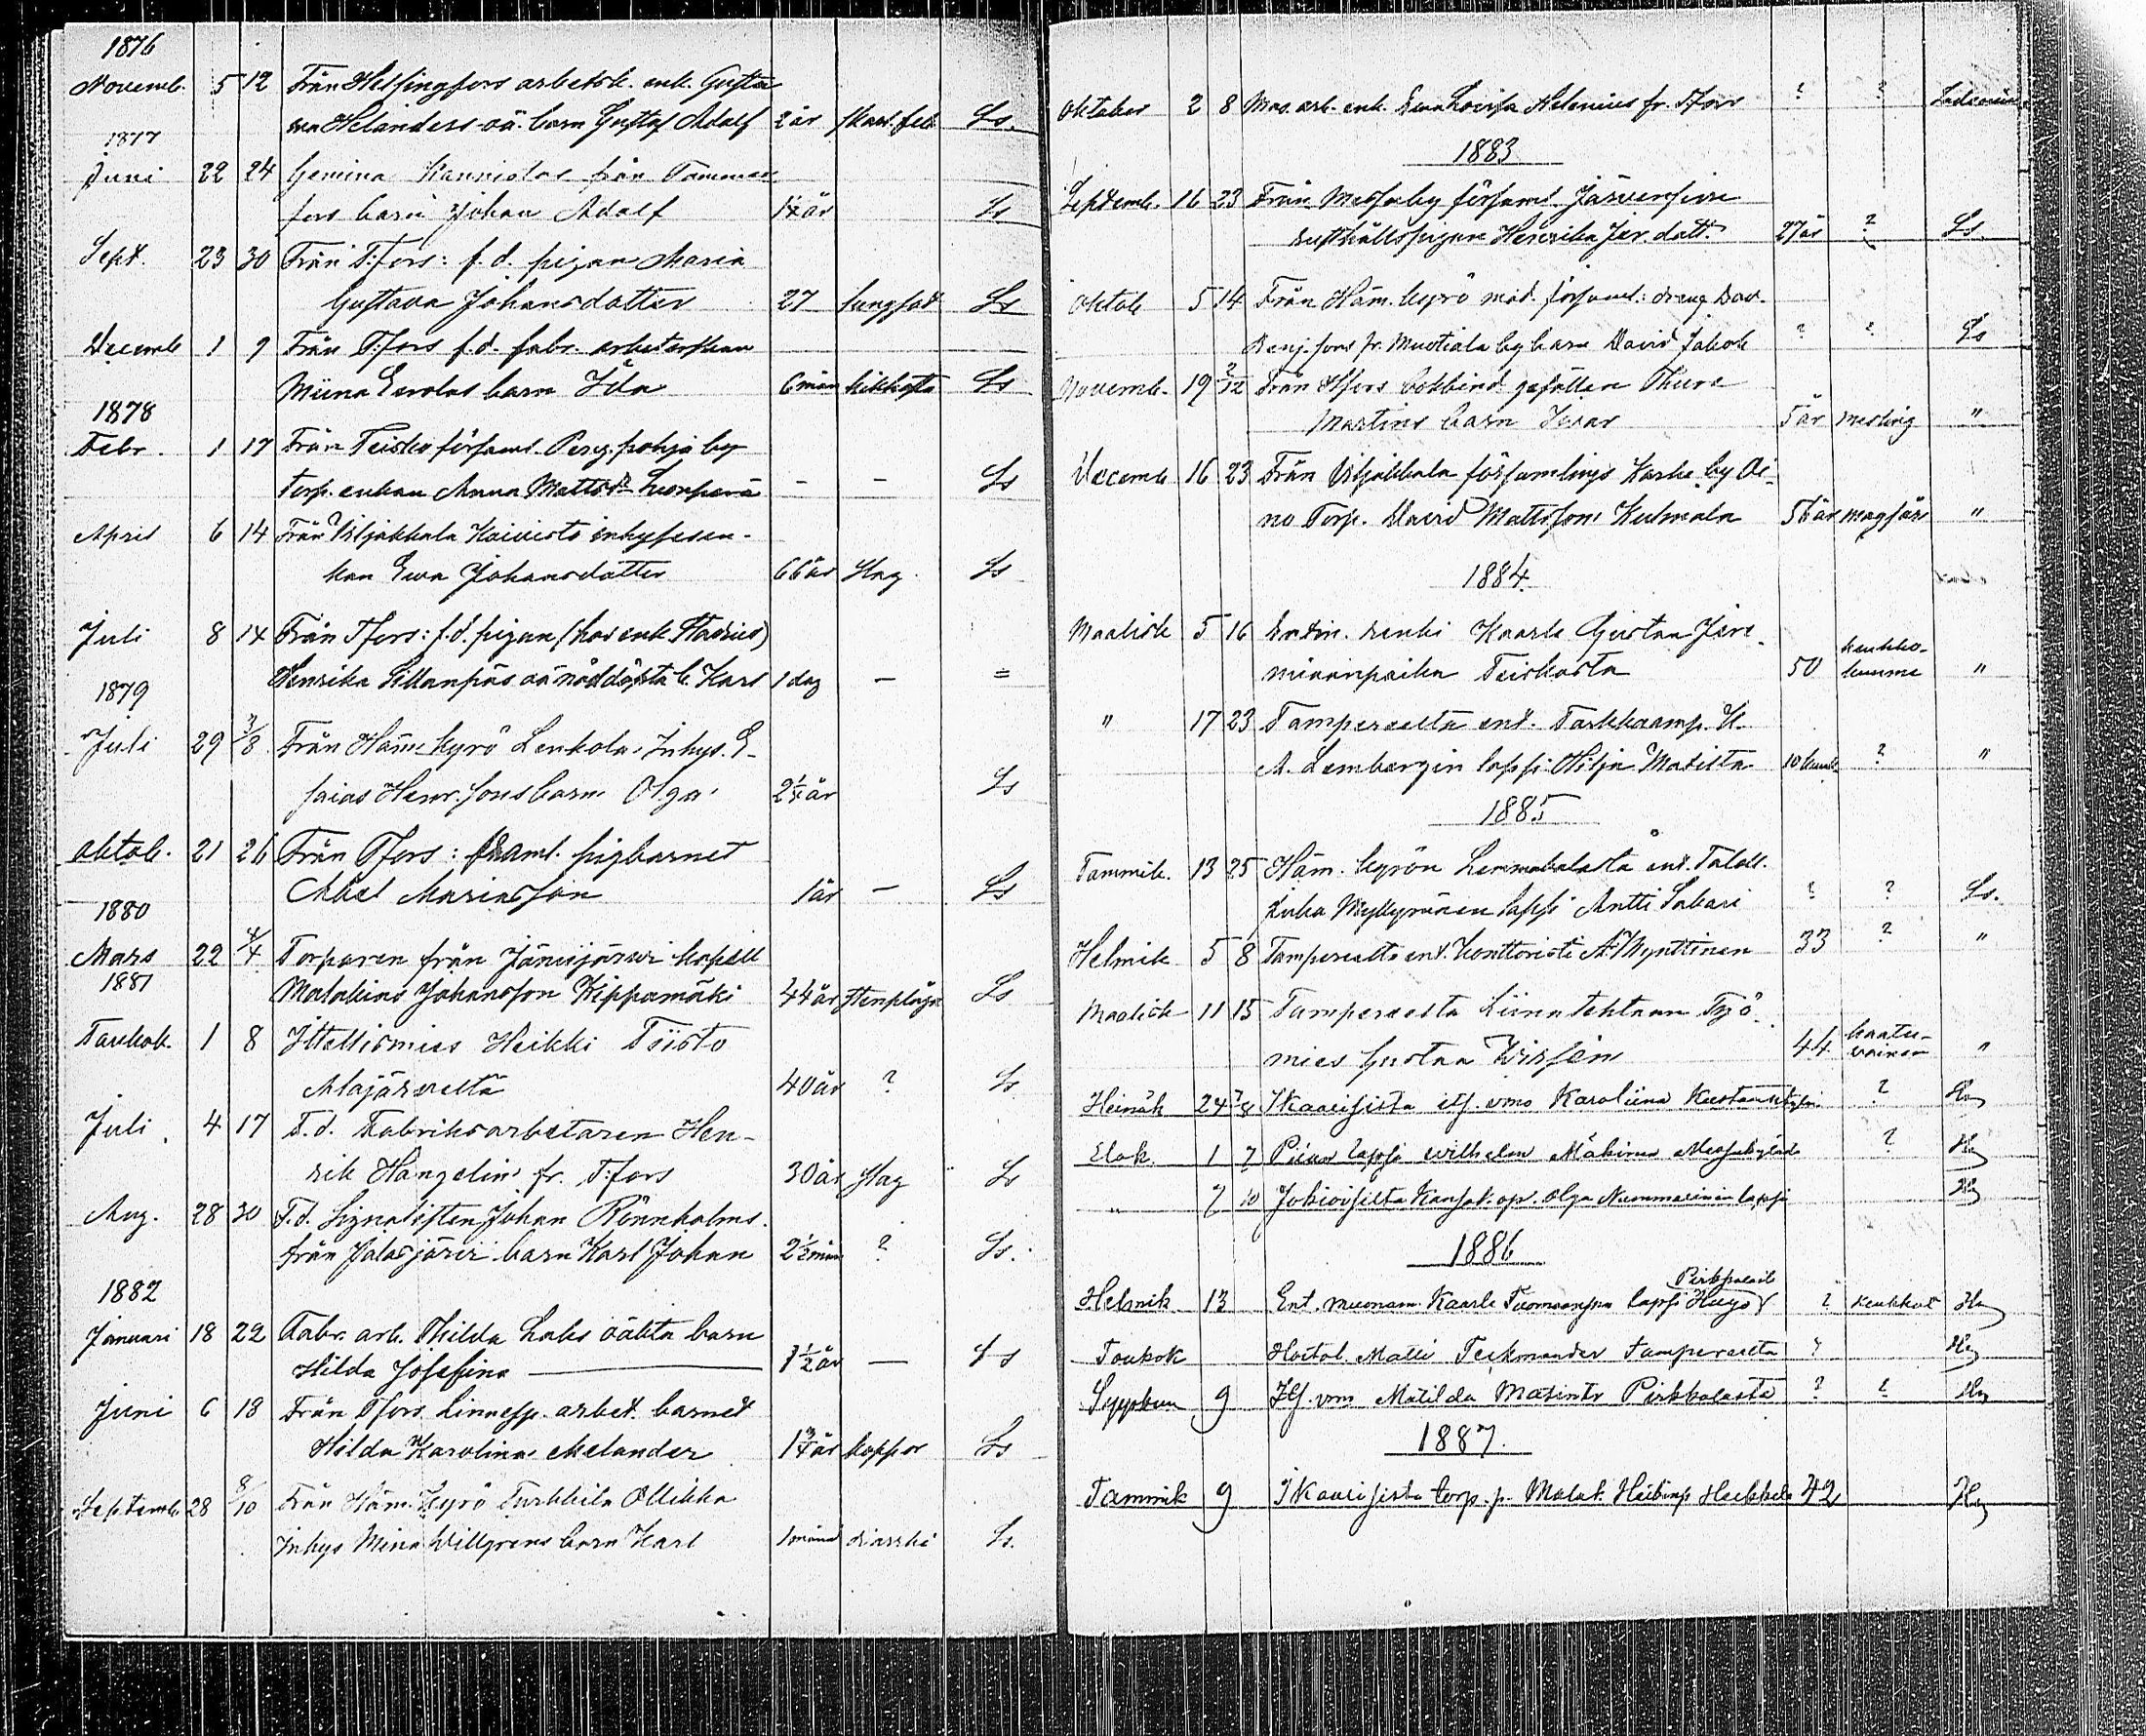 1876
Novemb. 5 12 Från Helsingfors arbetsk. enk. Gusta
va Helanders oä. barn Gustaf Adolf 2 år skarl. feb. Ls.
1877
Juni 22 24 Gemina Kanniolas från Tammer
fors barn Johan Adolf 1¼ år Ls
Sept. 23 30 Från T:fors: f.d. pigan Maria
Gustava Johansdotter 27 lungsot Ls
Decemb 1 9 Från T:fors f.d. fabr. arbeterskan
Miina Eerolas barn Ida 6 mån kikhosta Ls
1878
Febr. 1 17 Från Teisko församl. Perg.pohja by
torp. enkan Anna Mattsdr - - Ls
April 6 14 Från Viljakkala Koivisto inhysesen-
kan Ewa Johansdotter 66 år Slag Ls
Juli 8 14 Från T:fors: f.d. pigan (hos enk Stadius)
Henrika Sillanpääs oä nöddöpta b. Karl 1 dag - =
1879
Juli 29 3/8 Från Häm-kyrö Lenkola, Inhys. E-
saias Henr.sons barn Olga 2¼ år Ls
Oktob. 21 26 Från T:fors: framl. pigbarnet
Abel Mariasson 1 år - Ls
1880
Mars 22 4/4 Torparen från Jämijärvi kapell
Malakias Johansson Kippamäki 44 år stenplåga Ls
1881
Toukok. 1 8 Ittellismies Heikki Tiisto
Alajärveltä 40 år ? Ls
Juli 4 17 F.d. Fabriksarbetaren Hen-
rik Hangelin fr. T:fors 30 år slag Ls
Aug. 28 30 F.d. Signalisten Johan Rönnholms
från Jalasjärvi barn Karl Johan 2½ mån ? Ls.
1882
Januari 18 22 Fabr. arb. Thilda Laks oäkta barn
Hilda Josefina 1½ år - Ls
Juni 6 18 Från T:fors Linnesp. arbet. barnet
Hilda Karolina Melander 1¾ år koppor Ls
Septemb 28 8/10 Från Häm. Kyrö Turkkila Ollikka
Inhys Mina Willgrens barn Karl 1 månad diarrhé Ls.
Oktober 2 8 Mas. arb. enk. Eva Lovisa Helenius fr. T:fors ? ?
1883
Septemb. 16 23 Från Messuby församl. Järvensivu
rusthållspigan Henrika Jer. dott. 27 år ? Ls.
Oktob 5 14 Från Häm. kyrö mod. församl: dreng Dav.
Benj. sons fr. Mustiala by barn David Jakob ? ? Ls
Novemb. 19 2/12 Från H:fors bokbind. gesällen Thure
Martins barn Ivar 5 år mesling "
Decemb 16 23 Från Viljakkala församlings Karhe by Ai-
no Torp. David Mattssons Kulmala 56 år magsår "
1884.
Maalisk 5 16 Entin. renki Kaarle Gustaa Jere-
miaanpoika Teiskosta 50 keuhko-
kuume "
" 17 23 Tampereelta ent. Tarkkaamp. K.
A. Lembergin lapsi Hilja Matilta 10 kuuk ? "
1885
Tammik. 13 25 Häm. kyrön Lemmakalasta ent. Talok.
Juha Myllymäen lapsi Antti Sakari ? ? Ls.
Helmik 5 8 Tampereelta ent. konttoristi A. Mynttinen 33 ? "
Maalisk 11 15 Tampereelta Liinatehtaan Työ-
mies Gustaa Wirsén 44 kaatu-
vainen "
Heinäk 24 2/8 Ikaalisista itj. vmo Karoliina Kustaantytär ? Hg
Elok. 1 7 Piian lapsi Wilhelm Mäkinen Messukylästä ? Hg
" 7 10 Jokioisilta Kansak. op. Olga Nummelinin lapsi Hg
1886
Helmik 13 Ent. muonam. Kaarle Tuomaanpn lapsi Hugo Pirkkalasta ? keuhkot Hg
Toukok Hostol. Matti Teikmander Tampereelta ? Hg
Syyskuu 9 Itj. vmo Matilda Matintr Pirkkalasta ? ? Hg
1887.
Tammik 9 Ikaalisista torp. p. Malak. Heikinp. Heikkilä 42 Hg